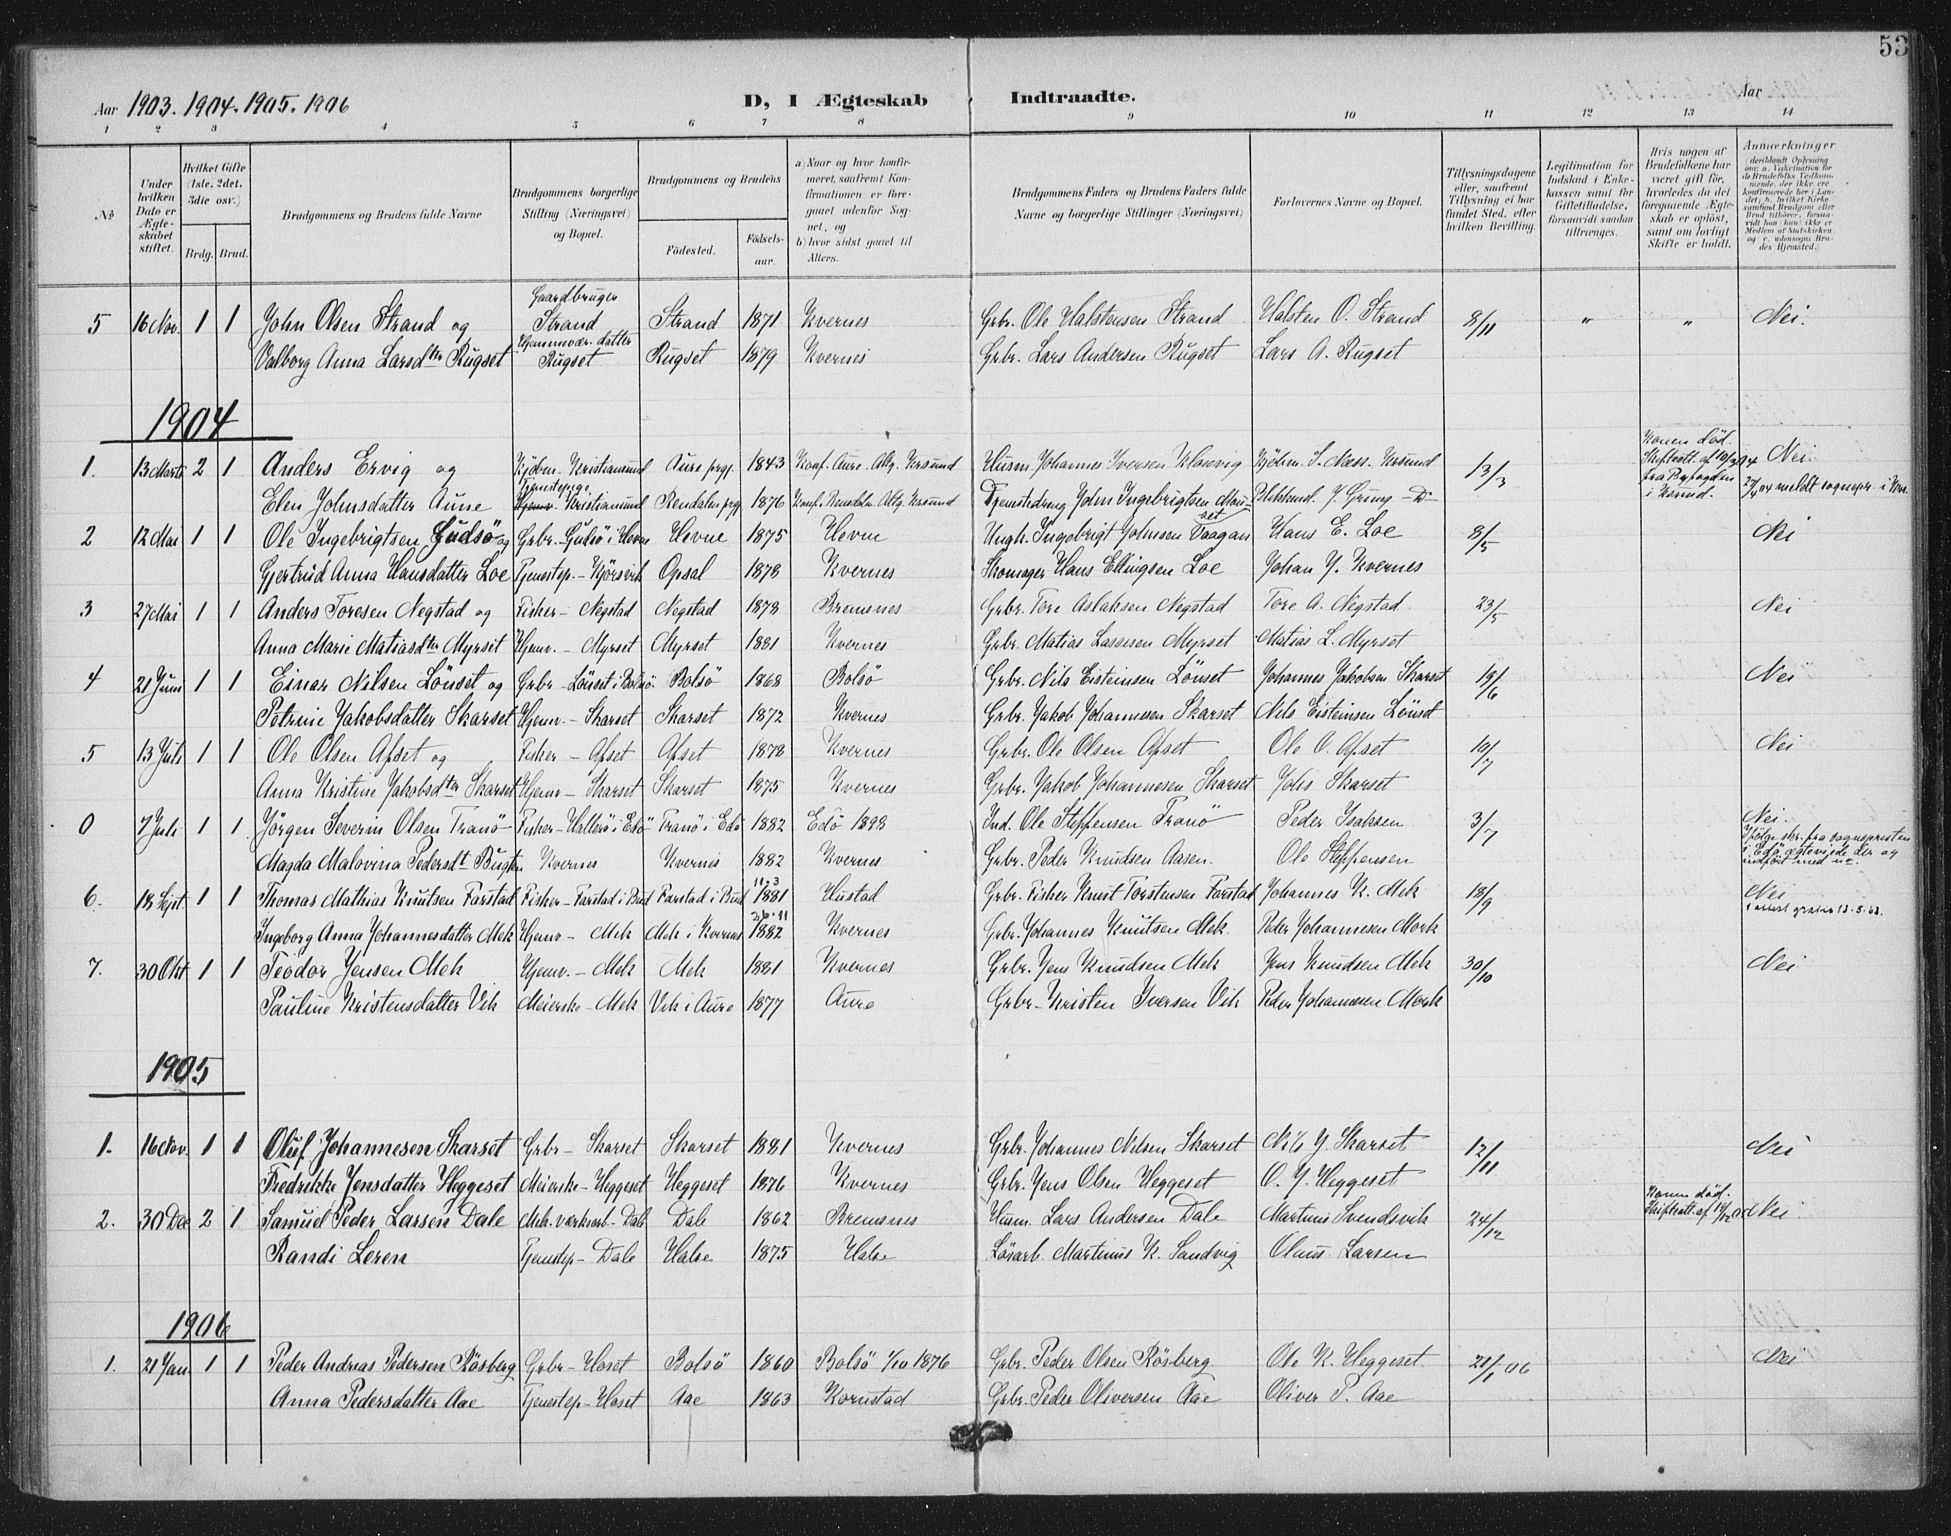 53
Aar 1903. 1904. 1905. 1906 D, I Ægteskab Indtraadte. Aar
1 2 3 4 5 6 7 8 9 10 11 12 13 14
No
Under hvilken Dato er Ægteskabet stiftet.
Hvilket Gifte (1ste, 2det, 3die osv.)
Brdg. Brud.
Brudgommens og Brudens fulde Navne
Brudgommens borgerlige Stilling (Næringsvei) og Bopæl.
Brudgommens og Brudens
Fødested. Fødselsaar.
a) Naar og hvor konfirmeret, saafremt Konfirmationen er foregaaet udenfor Sognet, og
b) hvor sidst gaaet til Alters.
Brudgommens Faders og Brudens Faders fulde Navne og borgerlige Stillinger (Næringsvei)
Forlovernes Navne og Bopæl.
Tillysningsdagene eller, saafremt Tillysning ei har fundet Sted, efter hvilken Bevilling.
Legitimation for Indskud i Enkekassen samt for Giftetilladelse, forsaavidt saadan tiltrænges.
Hvis nogen af Brudefolkene har været gift før, hvorledes da det foregaaende Ægteskab er opløst, samt om lovligt Skifte er holdt.
Anmærkninger
5 16 Nov. 1 1 John Olsen Strand og Gaardbruger Strand Strand 1871 Kvernes Grbr. Ole Halstensen Strand Halsten O. Strand 8/11 " " Nei.
Valborg Anna Larsdtr Rugset Hjemmevær. datter Rugset Rugset 1879 Kvernes Grbr. Lars Andersen Rugset Lars A. Rugset
1904
1. 13 Marts 2 1 Anders Ervig og Kjöbm. Kristiansund Aure prgj. 1843 Konf. Aure. Altg. Krsund Husm. Johannes Iversen Klosevig Kjöbm. S. Næss. Krsund 13/3 Konen död. Skifteatt. af 10/3 04 fra Byfogden i Krsund. Nei
Elen Johnsdatter Aune Tjenestepige Kristiansund Rendalen prgj. 1876 Konf. i Rendalen Altg. Krsund John Ingebrigtsen
2 12 Mai 1 1 Ole Ingebrigtsen Gudsö og Grbr. Gudsö i Hevne Hevne 1875 Hevne Ungk. Ingebrigt Johnsen Vaagan Hans E. Loe 8/5 Nei
Gjertrud Anna Hansdatter Loe Tjenestep. - Kjörsvik Opsal 1878 Kvernes Skomager Hans Ellingsen Loe Johan J. Kvernes
3 27 Mai 1 1 Anders Toresen Negstad og Fisker - Negstad Negstad 1878 Bremsnes Grbr. Tore Aslaksen Negstad Tore A. Negstad 23/5 Nei
Anna Marie Matiasdtr Myrset Hjemv. - Myrset Myrset 1881 Kvernes Grbr. Matias Larsen Myrset Matias L. Myrset
4 21 Juni 1 1 Einar Nilsen Lönset og Grbr - Lönset i Bolsö Bolsö 1868 Bolsö Grbr. Nils Eisteinsen Lönset Johannes Jakobsen Skarset 19/6 Nei
Petrine Jakobsdatter Skarset Hjemv. - Skarset Skarset 1872 Kvernes Grbr. Jakob Johannesen Skarset Nils Eisteinsen Lönset
5 13 Juli 1 1 Ole Olsen Apset og Fisker - Apset Apset 1878 Kvernes Grbr. Ole Olsen Apset Ole O. Apset 10/7 Nei
Anna Kristine Jakobsdtr Skarset Hjemv - Skarset Skarset 1875 Kvernes Grbr. Jakob Johannesen Skarset Johs Skarset
0 7 Juli 1 1 Jörgen Severin Olsen Tranö Fisker - Tranö i Edö 1882 Edö 1898 Ind. Ole Steffensen Tranö Peder Isaksen 3/7 Nei. Iflg. skr. fra sognepresten i Edö ægteviede der og indfört med no.
Magda Malovina Pedersdt Kvernes Kvernes 1882 Kvernes Grbr. Peder Knudsen Assen. Ole Steffensen
6. 18 Sept 1 1 Thomas Mathias Knutsen Farstad Fisker - Farstad i Bud Farstad i Bud 11.3 1881 Hustad Grbr. Fisker Knut Torstensen Farstad Johannes K. Mek 18/9 Nei
Ingeborg Anna Johannesdatter Mek Hjemv - Mek Mek i Kvernes 1882 Kvernes Grbr. Johannes Knutsen Mek Peder Johannesen Mork
7. 30 Okt 1 1 Teodor Jensen Mek Hjemv. - Mek Mek 1881 Kvernes Grbr. Jens Knudsen Mek Jens Knudsen Mek 30/10 Nei
Pauline Kristensdatter Vik Meierske - Mek Vik i Aure 1877 Aure Grbr - Kristen Iversen Vik Peder Johannesen Mork
1905
1. 16 Nov. 1 1 Oluf Johannesen Skarset Grbr - Skarset Skarset 1881 Kvernes Grbr. Johannes Nilsen Skarset Nils J. Skarset 12/11 Nei
Fredrikke Jensdatter Heggeset Meierske - Heggeset Heggeset 1876 Kvernes Grbr. Jens Olsen Heggeset O. J. Heggeset
2. 30 Dec 2 1 Samuel Peder Larsen Dale Dale Dale 1862 Bremsnes Husm. Lars Andersen Dale Martinus Svendsvik 24/12 Konen död. Nei
Randi Leren Tjenestep - Dale Halse 1875 Halse Lösarb. Martinus K. Sandvig Olaus Larsen
1906
1. 21 Jan. 1 1 Peder Andreas Pedersen Rösberg Grbr - Hoset Bolsö 1860 Bolsö 1/10 1876 Grbr. Peder Olsen Rösberg Ole K. Heggeset 21/1 06 Nei
Anna Pedersdatter Aae Tjenestep - Hoset Aae 1863 Kornstad Grbr. Peder Oliversen Aae Oliver P. Aae